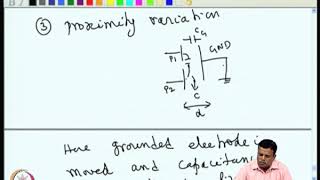 ③ Proximity variation
CG
P1
GND
P2
C
d
Here grounded electrode is
moved and capacitance